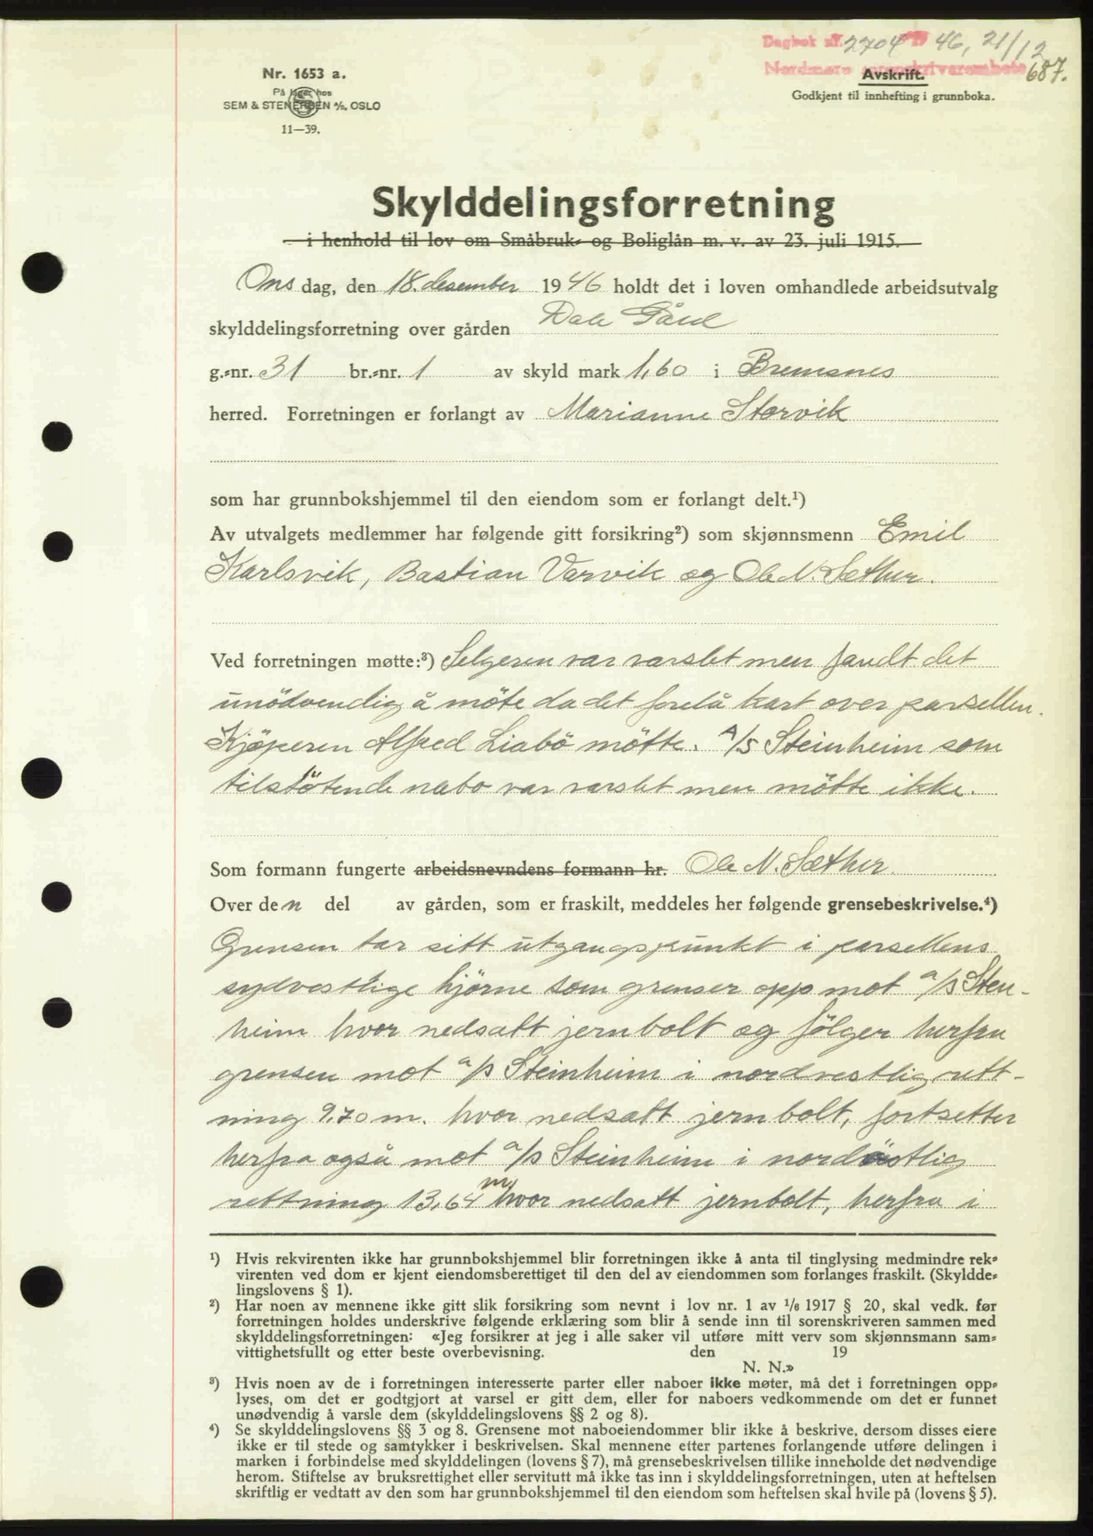 Dagbok nr. 2704 1946, 21/12
Nordmøre sorenskriverembete 687.
Nr. 1653 a.
På lager hos
SEM & STENERSEN A/S, OSLO
11—39.
Avskrift.
Godkjent til innhefting i grunnboka.
Skylddelingsforretning
i henhold til lov om Småbruk- og Boliglån m. v. av 23. juli 1915.
Onsdag, den 18. desember 1946 holdt det i loven omhandlede arbeidsutvalg
skylddelingsforretning over gården Dale Gård
g.-nr. 31 br.-nr. 1 av skyld mark 1,60 i Bremsnes
herred. Forretningen er forlangt av Marianne Storvik
som har grunnbokshjemmel til den eiendom som er forlangt delt.¹)
Av utvalgets medlemmer har følgende gitt forsikring²) som skjønnsmenn Emil
Karlsvik, Bastian Varvik og Ole N. Sæther.
Ved forretningen møtte:³) Selgeren var varslet men fandt det
unödvendig å möte da det forelå kart over parsellen.
Kjöperen Alfred Liabö mötte. A/S Steinheim som
tilstötende nabo var varslet men mötte ikke.
Som formann fungerte arbeidsnevndens formann hr. Ole N. Sæther.
Over den del av gården, som er fraskilt, meddeles her følgende grensebeskrivelse.⁴)
Grensen tar sitt utgangspunkt i parsellens
sydvestlige hjörne som grenser opp mot a/s Stein-
heim hvor nedsatt jernbolt og fölger herfra
grensen mot a/s Steinheim i nordvestlig rett-
ning 9.70 m. hvor nedsatt jernbolt, fortsetter
herfra også mot a/s Steinheim i nordöstlig
rettning 13,64 m hvor nedsatt jernbolt, herfra i
¹) Hvis rekvirenten ikke har grunnbokshjemmel blir forretningen ikke å anta til tinglysing medmindre rek-
virenten ved dom er kjent eiendomsberettiget til den del av eiendommen som forlanges fraskilt. (Skyldde-
lingslovens § 1).
²) Har noen av mennene ikke gitt slik forsikring som nevnt i lov nr. 1 av 1/6 1917 § 20, skal vedk. før
forretningen holdes underskrive følgende erklæring som blir å sende inn til sorenskriveren sammen med
skylddelingsforretningen: «Jeg forsikrer at jeg i alle saker vil utføre mitt verv som skjønnsmann sam-
vittighetsfullt og etter beste overbevisning. den 19
N. N.»
³) Hvis noen av de i forretningen interesserte parter eller naboer ikke møter, må det i forretningen opp-
lyses, om det er godtgjort at varsel er gitt dem, eller for naboers vedkommende om det er funnet
unødvendig å varsle dem (skylddelingslovens §§ 2 og 8).
⁴) Se skylddelingslovens §§ 3 og 8. Grensene mot naboeiendommer blir ikke å beskrive, dersom disses eiere
ikke er til stede og samtykker i beskrivelsen. Skal mennene etter partenes forlangende utføre delingen i
marken i forbindelse med skylddelingen (lovens § 7), må grensebeskrivelsen tillike inneholde det nødvendige
herom. Stiftelse av bruksrettighet eller servitutt må ikke tas inn i skylddelingsforretningen, uten at heftelsen
skriftlig er vedtatt av den som har grunnbokshjemmel til den eiendom som heftelsen skal hvile på (lovens § 5).